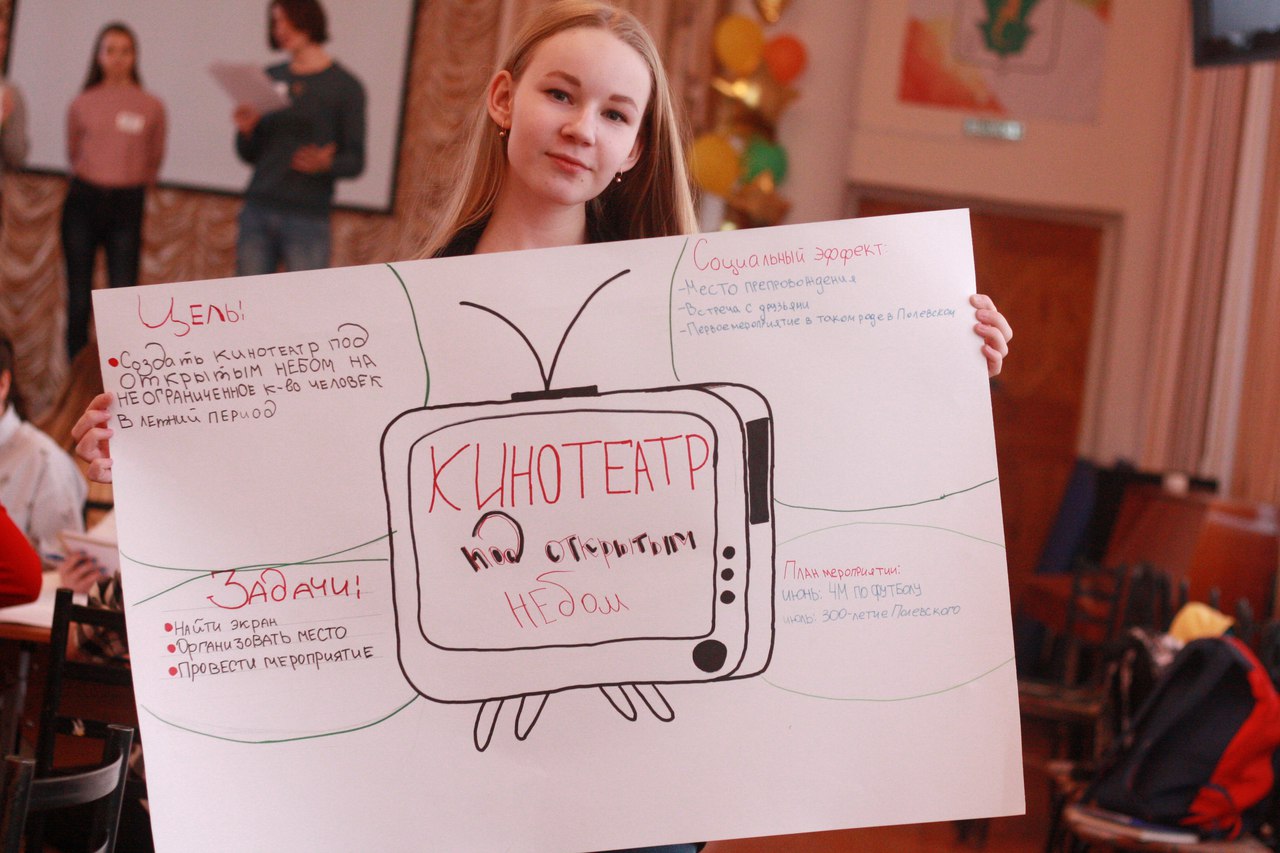 Цель:
•Создать кинотеатр под
открытым небом на
неограниченное к-во человек
в летний период
Социальный эффект:
-Место препровождения
-Встреча с друзьями
-Первое мероприятие в таком роде в Полевском
КИНОТЕАТР
под открытым
небом
Задачи:
•Найти экран
•Организовать место
•Провести мероприятие
План мероприятии:
июнь: ЧМ по футболу
июль: 300-летие Полевского